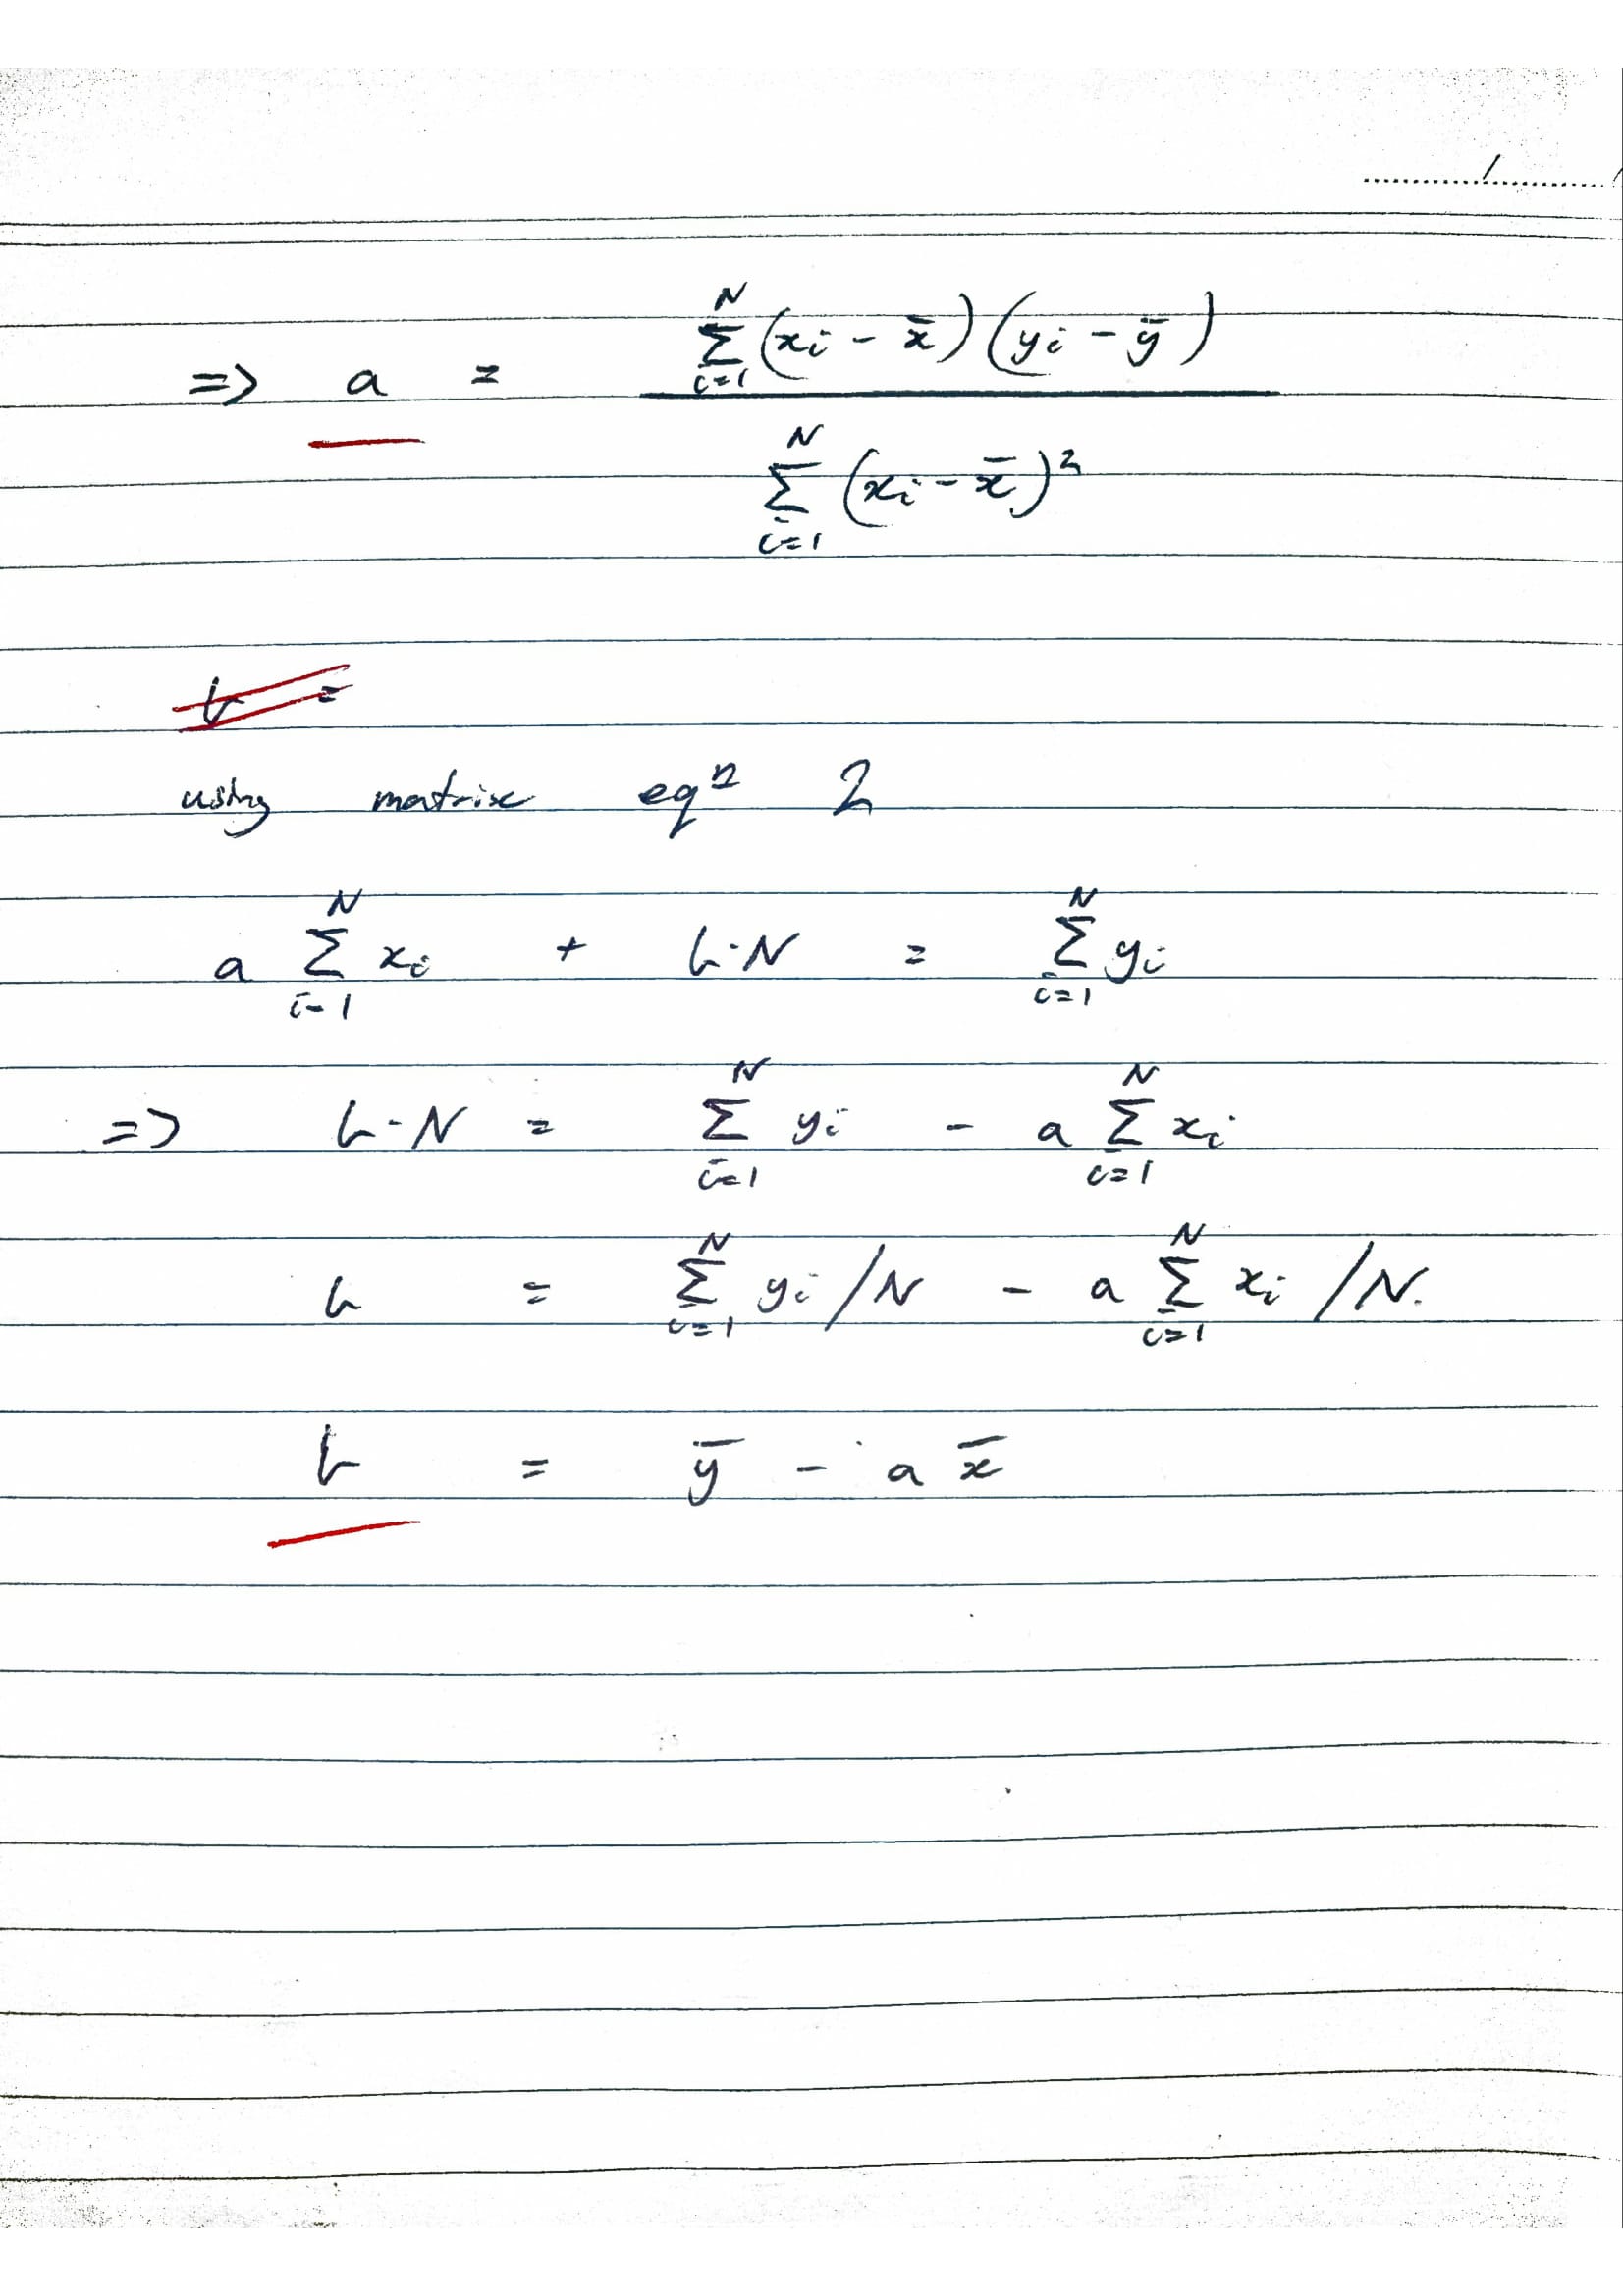 => a = \frac{\sum_{i=1}^{N} (x_i - \bar{x})(y_i - \bar{y})}{\sum_{i=1}^{N} (x_i - \bar{x})^2}
b =
using matrix eqⁿ 2
a \sum_{i=1}^{N} x_i + b·N = \sum_{i=1}^{N} y_i
=> b·N = \sum_{i=1}^{N} y_i - a \sum_{i=1}^{N} x_i
b = \sum_{i=1}^{N} y_i /N - a \sum_{i=1}^{N} x_i /N.
b = \bar{y} - a \bar{x}